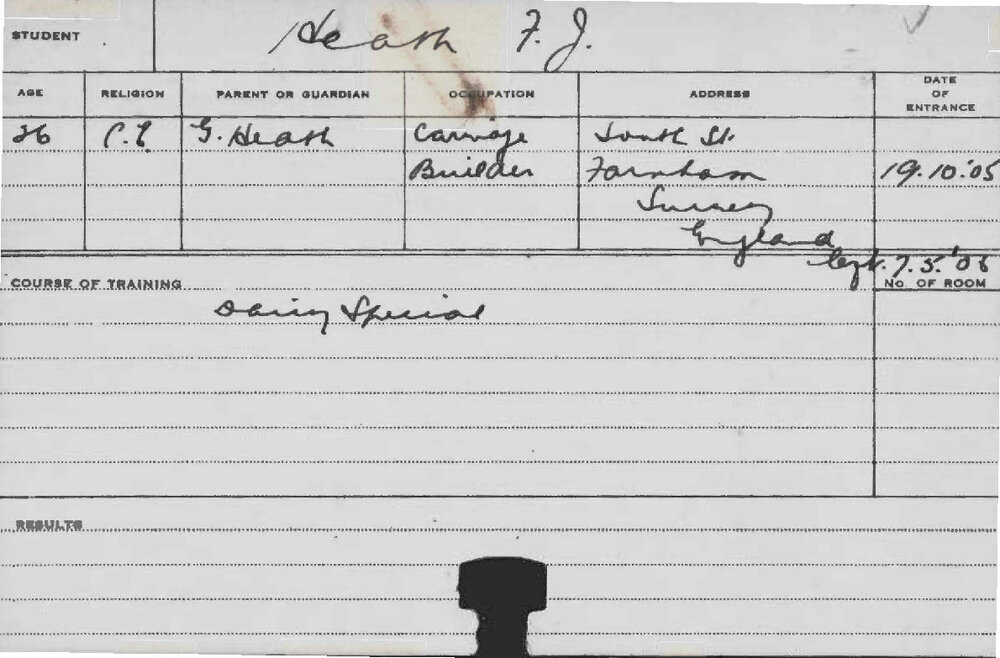 STUDENT Heath F. J.
AGE RELIGION PARENT OR GUARDIAN OCCUPATION ADDRESS DATE OF ENTRANCE
26 C.E. G. Heath Carriage South St.
Builder Farnham 19.10.'05
Surrey
England
7.5.'06
COURSE OF TRAINING NO. OF ROOM
Dairy Special
RESULTS